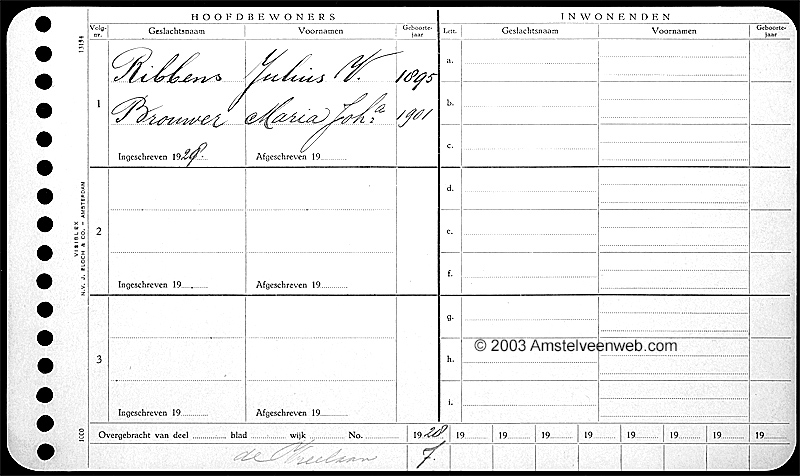 HOOFDBEWONERS
INWONENDEN
Volg-nr. Geslachtsnaam Voornamen Geboorte-jaar
Lett. Geslachtsnaam Voornamen Geboorte-jaar
13158
1
Ribbens Julius V. 1895
Brouwer Maria Joh.a 1901
Ingeschreven 1928. Afgeschreven 19
a.
b.
c.
2
Ingeschreven 19 Afgeschreven 19
d.
e.
f.
VISIBLEX
N.V. J. BLOCH & CO. - AMSTERDAM
3
Ingeschreven 19 Afgeschreven 19
g.
© 2003 Amstelveenweb.com
h.
i.
1000
Overgebracht van deel blad wijk No. 1928 19 19 19 19 19 19 19 19
de 7.